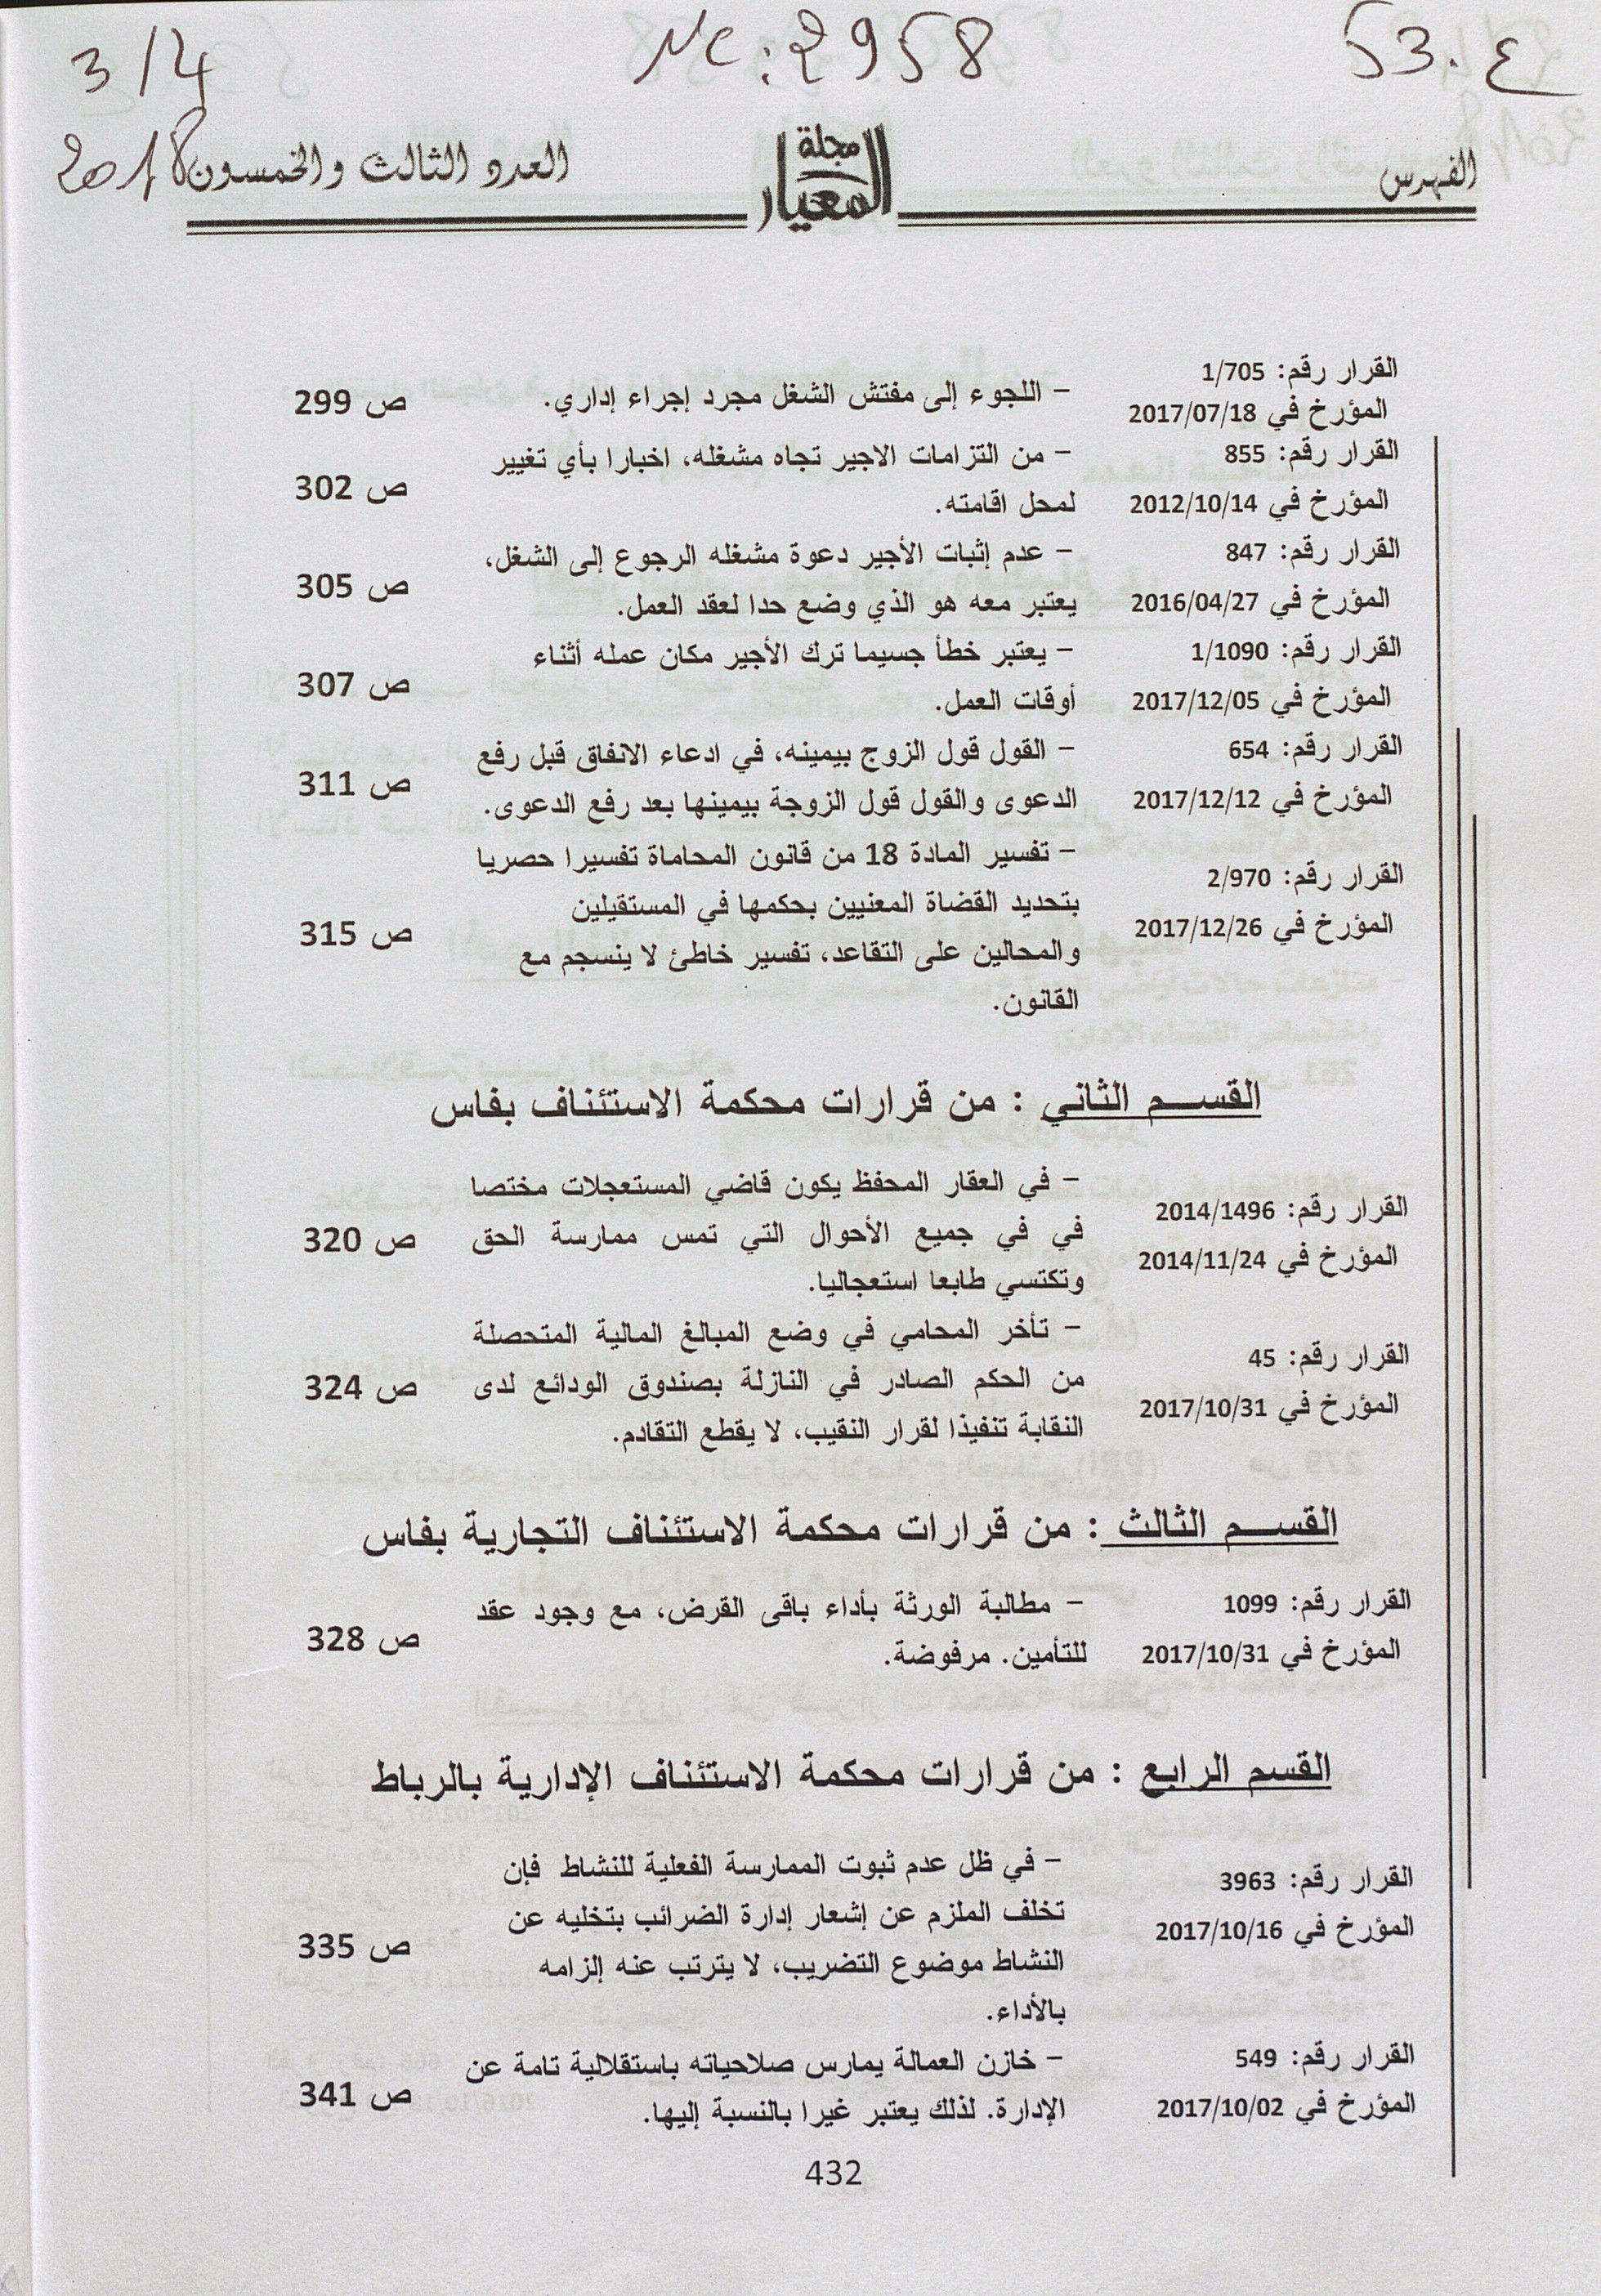 53.ع
Nc: 2958
3/4
2018
الفهرس
مجلة
المعيار
العدد الثالث والخمسون
القرار رقم: 1/705
المؤرخ في 2017/07/18
- اللجوء إلى مفتش الشغل مجرد إجراء إداري.
ص 299
القرار رقم: 855
المؤرخ في 2012/10/14
- من التزامات الاجير تجاه مشغله، اخبارا بأي تغيير
لمحل اقامته.
ص 302
القرار رقم: 847
المؤرخ في 2016/04/27
- عدم إثبات الأجير دعوة مشغله الرجوع إلى الشغل،
يعتبر معه هو الذي وضع حدا لعقد العمل.
ص 305
القرار رقم: 1/1090
المؤرخ في 2017/12/05
- يعتبر خطأ جسيما ترك الأجير مكان عمله أثناء
أوقات العمل.
ص 307
القرار رقم: 654
المؤرخ في 2017/12/12
- القول قول الزوج بيمينه، في ادعاء الانفاق قبل رفع
الدعوى والقول قول الزوجة بيمينها بعد رفع الدعوى.
ص 311
القرار رقم: 2/970
المؤرخ في 2017/12/26
- تفسير المادة 18 من قانون المحاماة تفسيرا حصريا
بتحديد القضاة المعنيين بحكمها في المستقيلين
والمحالين على التقاعد، تفسير خاطئ لا ينسجم مع
القانون.
ص 315
القســـم الثاني : من قرارات محكمة الاستئناف بفاس
القرار رقم: 2014/1496
المؤرخ في 2014/11/24
- في العقار المحفظ يكون قاضي المستعجلات مختصا
في في جميع الأحوال التي تمس ممارسة الحق
وتكتسي طابعا استعجاليا.
ص 320
القرار رقم: 45
المؤرخ في 2017/10/31
- تأخر المحامي في وضع المبالغ المالية المتحصلة
من الحكم الصادر في النازلة بصندوق الودائع لدى
النقابة تنفيذا لقرار النقيب، لا يقطع التقادم.
ص 324
القســـم الثالث : من قرارات محكمة الاستئناف التجارية بفاس
القرار رقم: 1099
المؤرخ في 2017/10/31
- مطالبة الورثة بأداء باقى القرض، مع وجود عقد
للتأمين. مرفوضة.
ص 328
القسم الرابع : من قرارات محكمة الاستئناف الإدارية بالرباط
القرار رقم: 3963
المؤرخ في 2017/10/16
- في ظل عدم ثبوت الممارسة الفعلية للنشاط فإن
تخلف الملزم عن إشعار إدارة الضرائب بتخليه عن
النشاط موضوع التضريب، لا يترتب عنه إلزامه
بالأداء.
ص 335
القرار رقم: 549
المؤرخ في 2017/10/02
- خازن العمالة يمارس صلاحياته باستقلالية تامة عن
الإدارة. لذلك يعتبر غيرا بالنسبة إليها.
ص 341
432